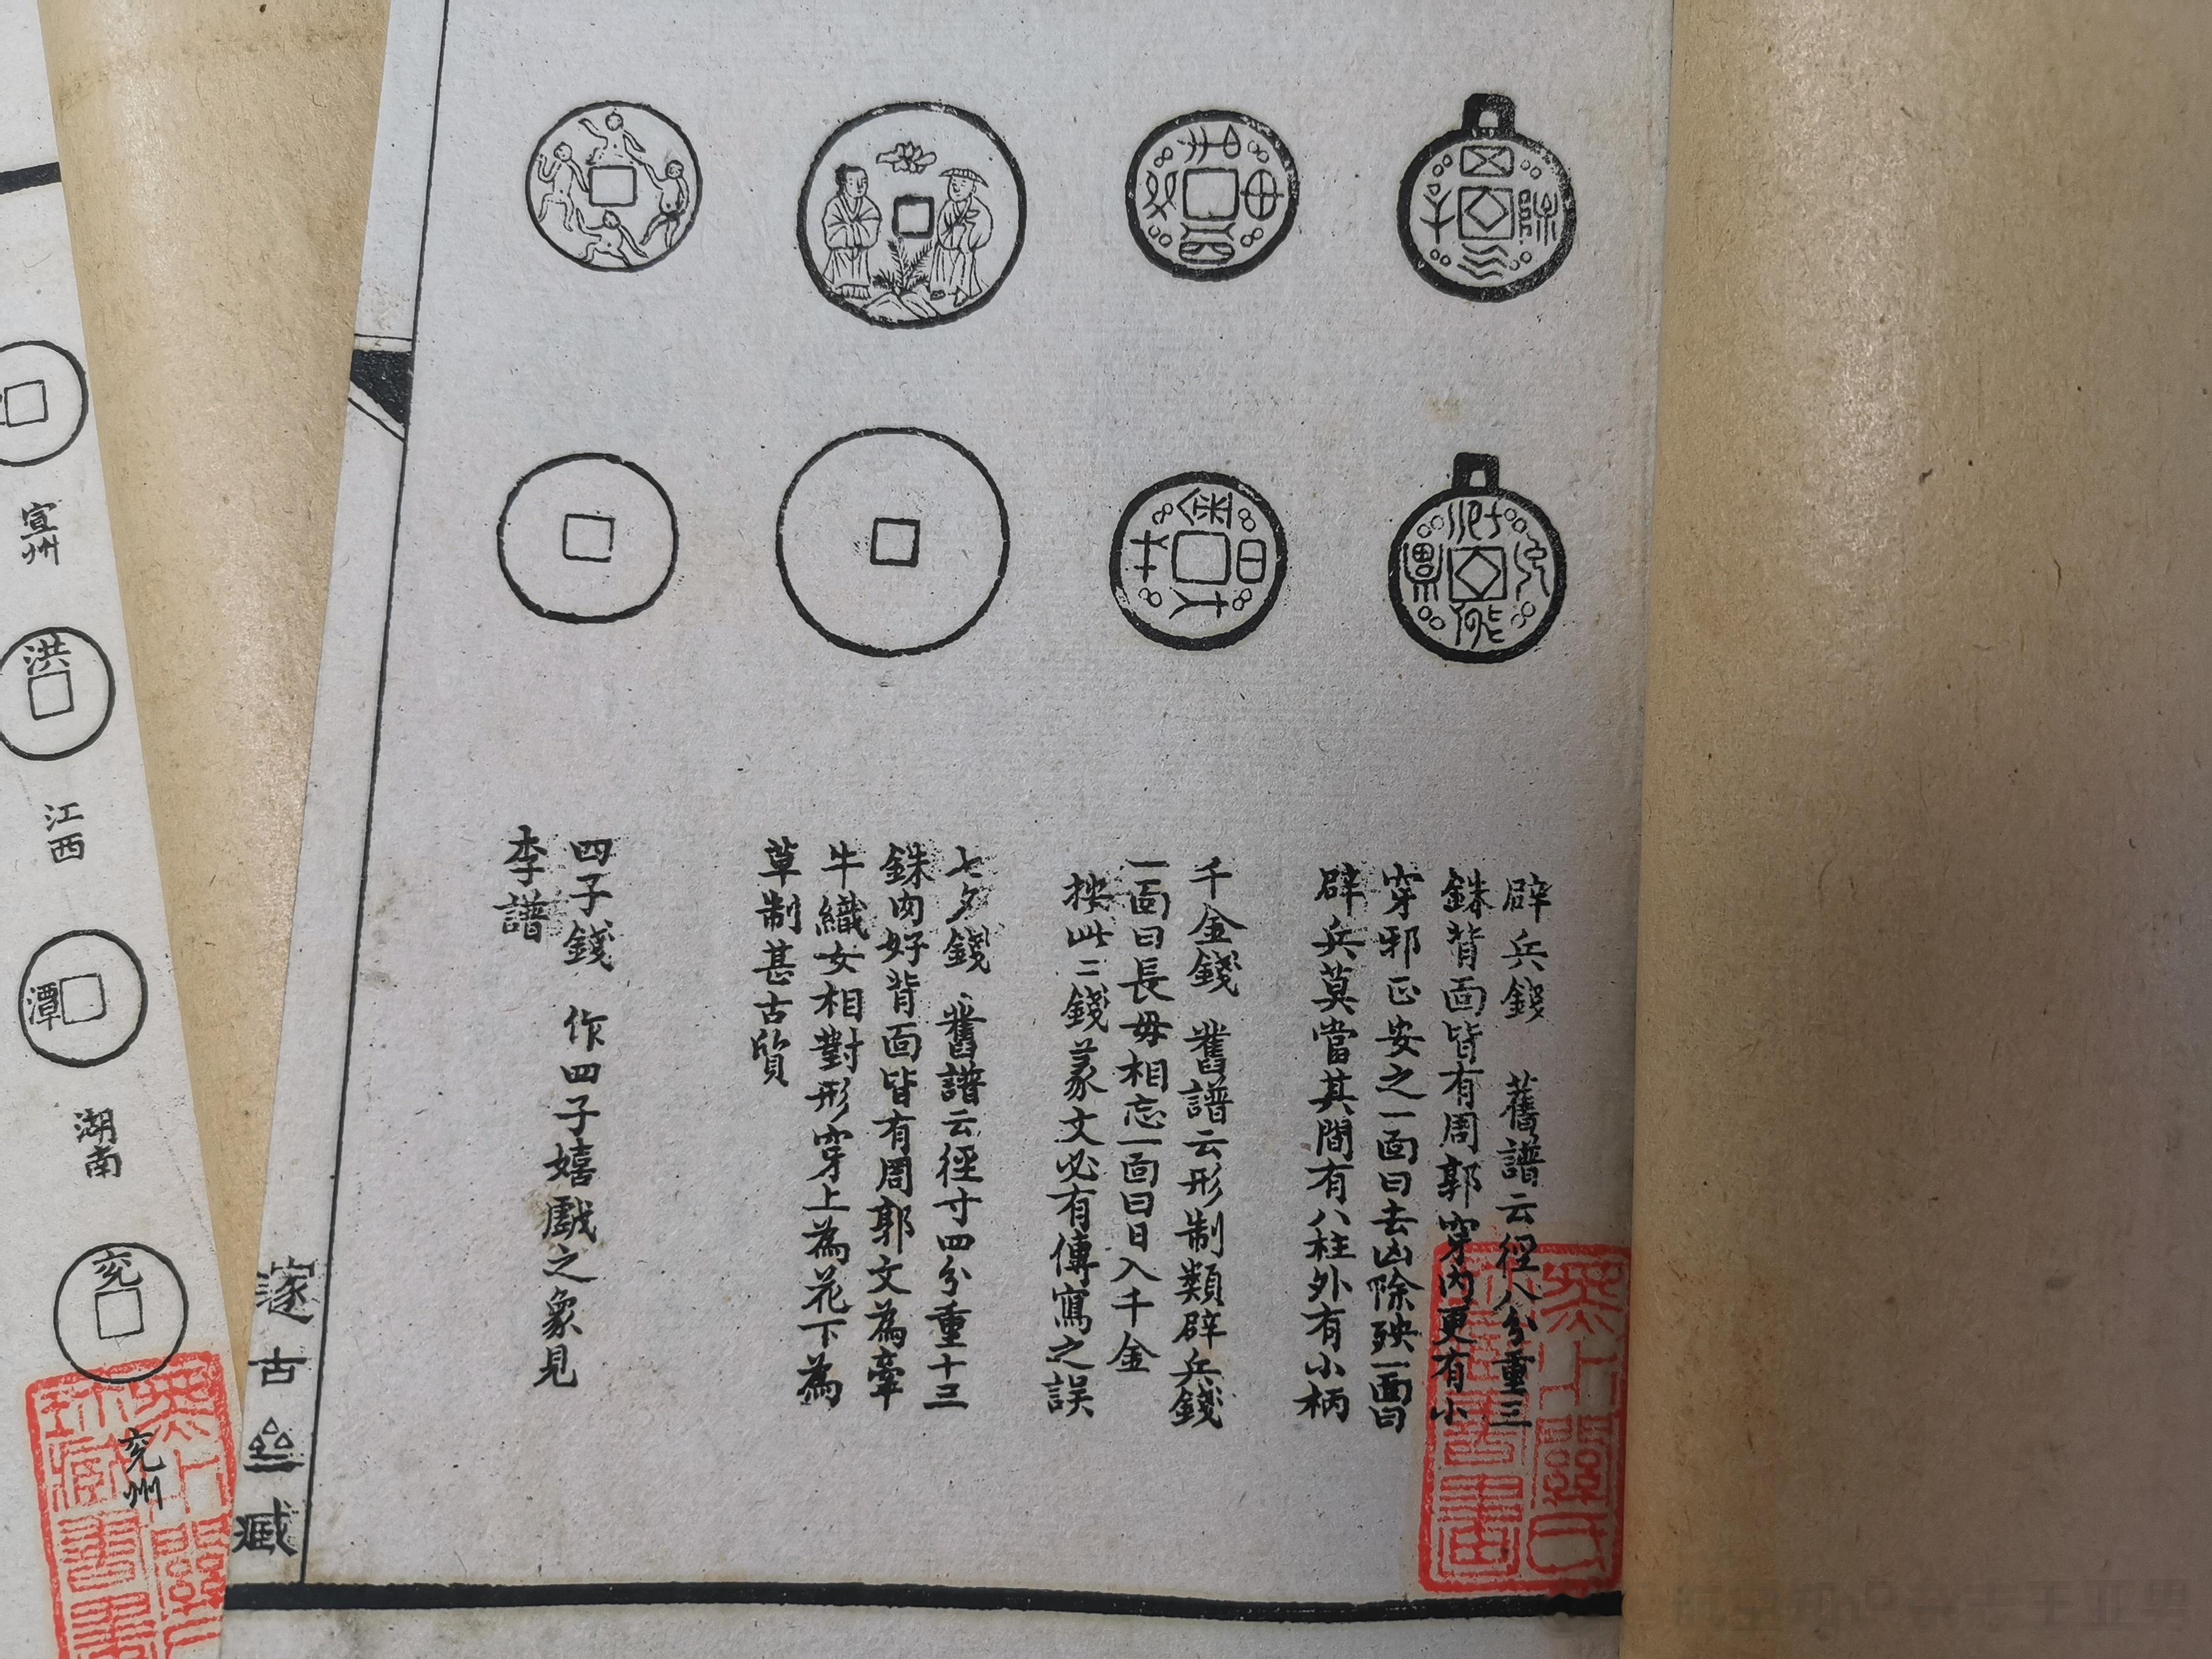 辟兵錢 舊譜云徑八分重三
銖背面皆有周郭穿内更有小
穿邪正安之一面曰去凶除殃一面曰
辟兵莫當其間有八柱外有小柄
千金錢 舊譜云形制類辟兵錢
一面曰長毋相忘一面曰日入千金
按此二錢篆文必有傳寫之誤
七夕錢 舊譜云徑寸四分重十三
銖肉好背面皆有周郭文為牽
牛織女相對形穿上為花下為
草制甚古質
四子錢 作四子嬉戲之象見
李譜
邃古盦臧
宣州
洪
江西
潭
湖南
兖
兖州